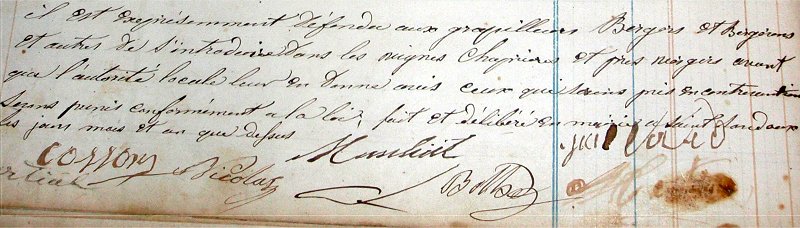 il est expressément défendu aux grapilleurs Bergers et Bergères
et autres de s'introduire dans les vignes et pres avant
que l'autorité locale leur en donne avis ceux qui pris en contravention
Serons punis conformément a la loi, fait et délibéré en mairie a Saint
les jour mois et an que dessus
Nicolas